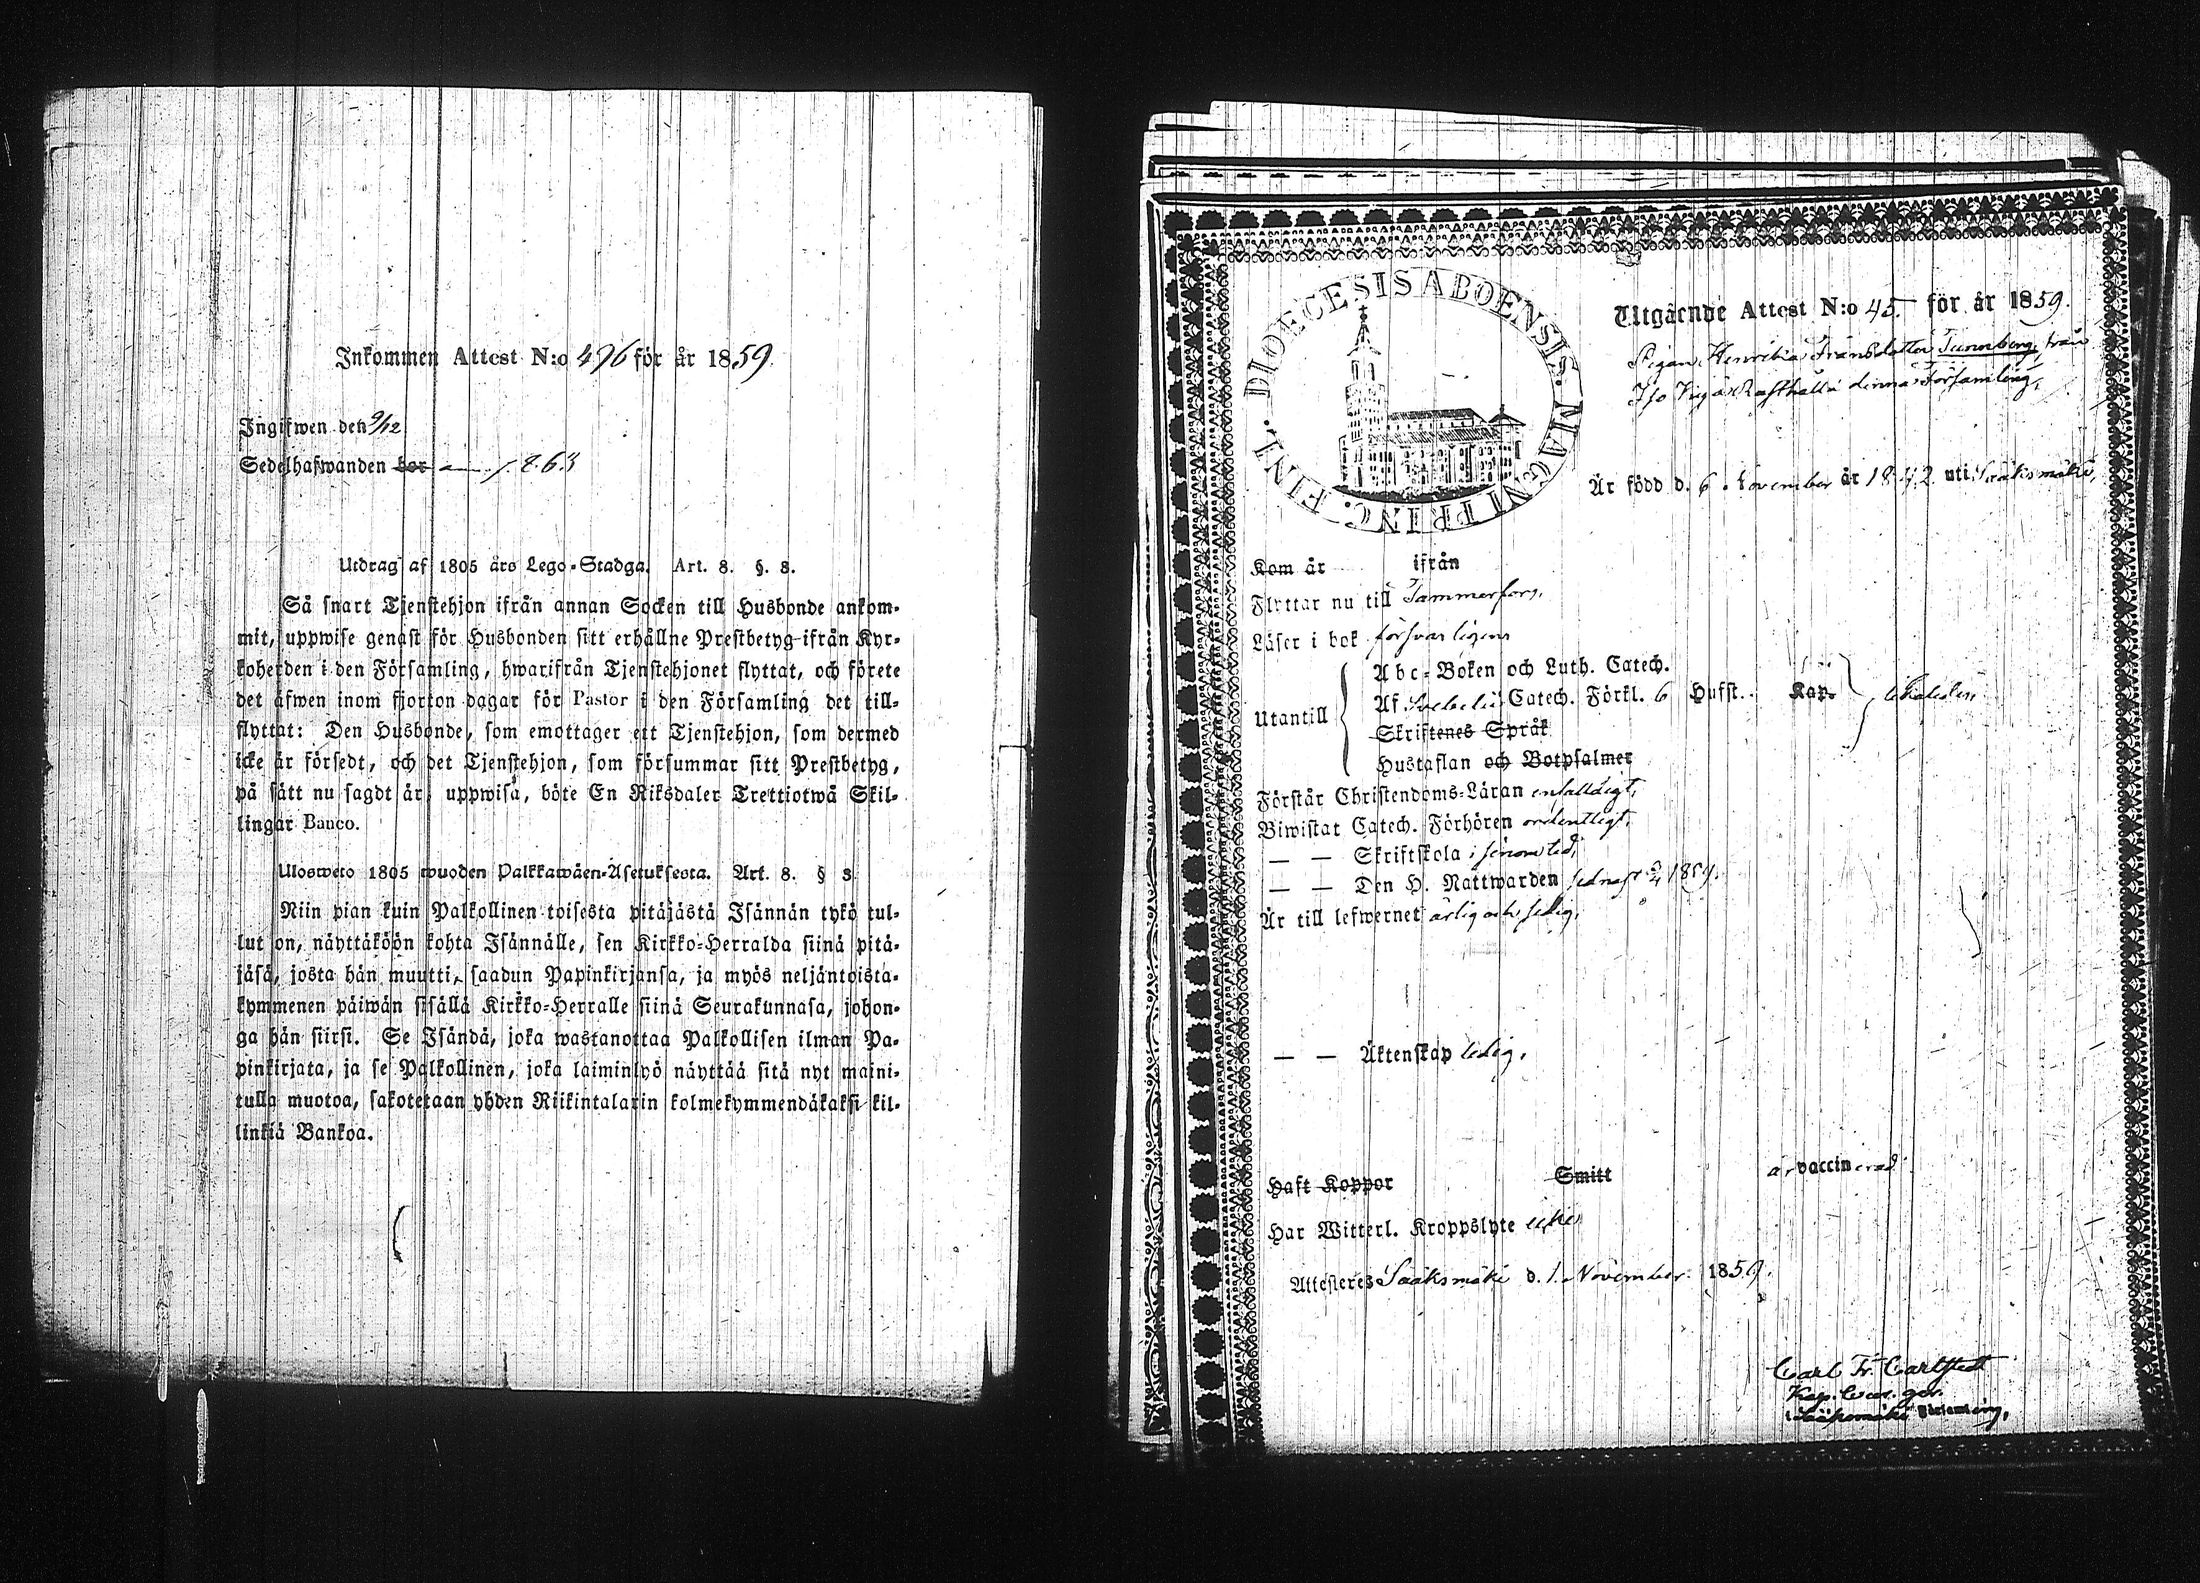 Inkommen Attest N:o 496 för år 1859.
Ingifwen den 9/12
Sedelhafwanden bor a p. 263
Utdrag af 1805 års Lego-Stadga. Art. 8. §. 8.
Så snart Tjenstehjon ifrån annan Socken till Husbonde ankom-
mit, uppwise genast för Husbonden sitt erhållne Prestbetyg ifrån Kyr-
koherden i den Församling, hwarifrån Tjenstehjonet flyttat, och förete
det äfwen inom fjorton dagar för Pastor i den Församling det till-
flyttat: Den Husbonde, som emottager ett Tjenstehjon, som dermed
icke är försedt, och det Tjenstehjon, som försummar sitt Prestbetyg,
på sätt nu sagdt är, uppwisa, böte En Riksdaler Trettiotwå Skil-
lingar Banco.
Ulosweto 1805 wuoden Palkkawäen-Asetuksesta. Art. 8. § 8.
Niin pian kuin Palkollinen toisesta pitäjästä Isännän tykö tul-
lut on, näyttäköön kohta Isännälle, sen Kirkko-Herralda siinä pitä-
jäsä, josta hän muutti, saadun Papinkirjansa, ja myös neljäntoista-
kymmenen päiwän sisällä Kirkko-Herralle siinä Seurakunnasa, johon-
ga hän siirsi. Se Isändä, joka wastanottaa Palkollisen ilman Pa-
pinkirjata, ja se Palkollinen, joka laiminlyö näyttää sitä nyt maini-
tulla muotoa, sakotetaan yhden Riikintalarin kolmekymmendäkaksi kil-
linkiä Bankoa.
DIOECESIS ABOENSIS. MAGNI PRINC. FINL.
Utgående Attest N:o 45. för år 1859.
Pigan Henrika Fransdotter Tunnberg, från
denna Församling,
Är född d. 6 November år 1842 uti Sääksmäki,
Kom år ifrån
Flyttar nu till Tammerfors,
Läser i bok försvarligen
Utantill
Abc-Boken och Luth. Catech.
Af Svebelii Catech. Förkl. 6 Hufst. Kap.
Skriftenes Språk
Hustaflan och Botpsalmer
Förstår Christendoms-Läran enfaldigt,
Biwistat Catech. Förhören ordentligt,
— — Skriftskola, genomted,
— — Den H. Nattwarden sednast 1859.
Är till lefwernet ärlig och sedig,
— — Äktenskap ledig,
Haft Koppor Smitt är vaccinerad
Har Witterl. Kroppslyte icke
Attesteres Sääksmäki d. 1. November 1859.
Carl Fr. Carlstedt
Kap. Cur. ger.
i Sääksmäki Församling,